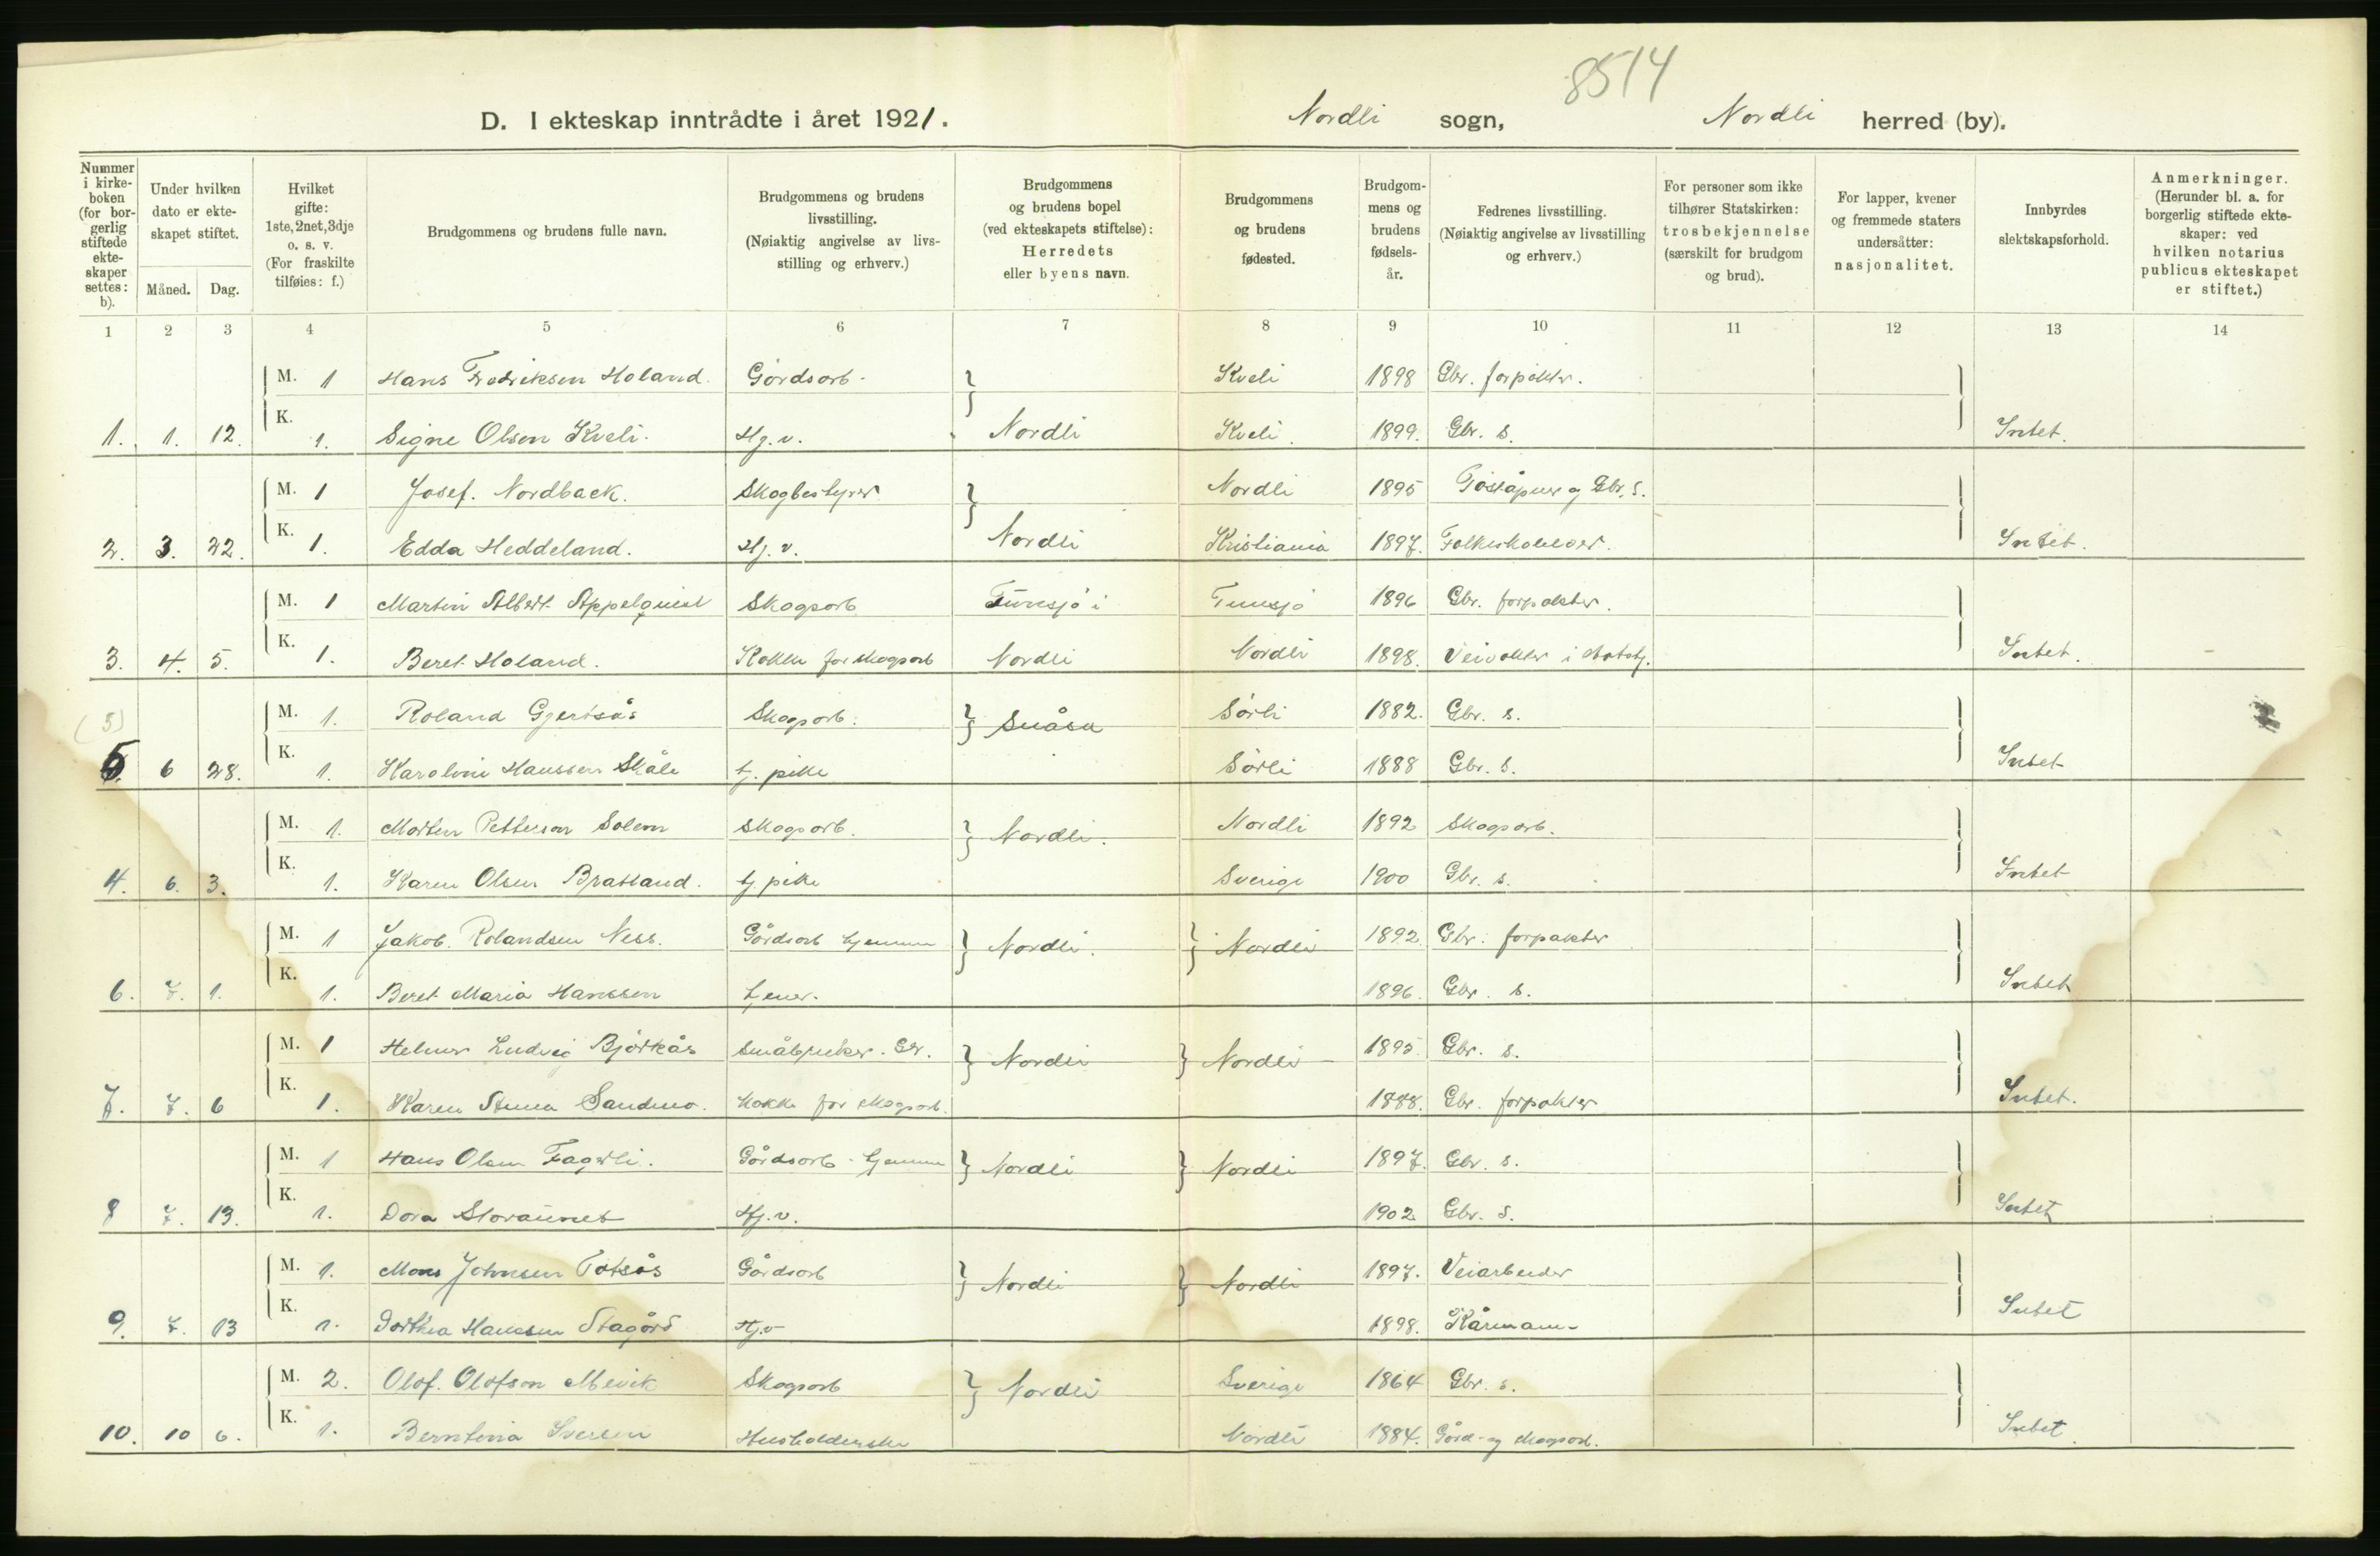 8514
D. I ekteskap inntrådte i året 1921. Nordli sogn, Nordli herred (by).
Nummer i kirkeboken (for borgerlig stiftede ekteskaper settes: b).
Under hvilken dato er ekteskapet stiftet.
Måned. Dag.
Hvilket gifte: 1ste, 2net, 3dje o. s. v. (For fraskilte tilføies: f.)
Brudgommens og brudens fulle navn.
Brudgommens og brudens livsstilling. (Nøiaktig angivelse av livsstilling og erhverv.)
Brudgommens og brudens bopel (ved ekteskapets stiftelse): Herredets eller byens navn.
Brudgommens og brudens fødested.
Brudgommens og brudens fødselsår.
Fedrenes livsstilling. (Nøiaktig angivelse av livsstilling og erhverv.)
For personer som ikke tilhører Statskirken: trosbekjennelse (særskilt for brudgom og brud).
For lapper, kvener og fremmede staters undersåtter: nasjonalitet.
Innbyrdes slektskapsforhold.
Anmerkninger. (Herunder bl. a. for borgerlig stiftede ekteskaper: ved hvilken notarius publicus ekteskapet er stiftet.)
1 2 3 4 5 6 7 8 9 10 11 12 13 14
M. 1 Hans Fredriksen Holand. Gårdsarb. Kveli 1898 Gbr. forpakter.
1. 1. 12. K. 1. Signe Olsen Kveli. Hj. v. Nordli Kveli. 1899. Gbr. s. Intet.
M. 1 Josef. Nordback. Skogbestyrer Nordli 1895 og Gbr. s.
2. 3. 22. K. 1. Edda Heddeland. Hj. v. Nordli Kristiania 1897. Folkeskolelær. Intet.
M. 1 Martin Albert Appelquist Skogsarb Tunsjø i Tunsjø 1896 Gbr. forpakter.
3. 4. 5. K. 1. Beret Holand. Kokke for skogsarb Nordli Nordli 1898. Veivokter i Intet.
(5) M. 1. Roland Gjersås Skogsarb. Snåsa Sørli 1882. Gbr. s.
5. 6 28. K. 1. Karoline Hanssen Skåle tj. pike Sørli 1888 Gbr. s. Intet
M. 1. Morten Petterson Solem Skogsarb. Nordli. Nordli 1892 Skogsarb.
4. 6. 3. K. 1. Karen Olsen Bratland. tj pike Sverige 1900 Gbr. s. Intet
M. 1 Jakob. Rolandsen Ness. Gårdsarb hjemme Nordli. Nordli 1892. Gbr. forpakter
6. 7. 1. K. 1. Beret Maria Hanssen tjener. 1896. Gbr. s. Intet
M. 1 Helmer Ludvig Bjørkås Småbruker. Gbr. Nordli Nordli 1895 Gbr. s.
7. 7. 6 K. 1. Karen Anna Sandmo. Kokke for skogsarb. 1888. Gbr. forpakter Intet.
M. 1 Hans Olsen Fagerli. Gårdsarb. hjemme Nordli Nordli 1897. Gbr. s.
8 7. 13. K. 1. Dora Storaunet Hj. v. 1902 Gbr. s. Intet
M. 1. Mons Johnsen Totsås Gårdsarb Nordli Nordli 1897. Veiarbeider
9. 7. 13 K. 1. Dorthea Hanssen Stagård Hj. v 1898. Kårmann Intet
M. 2. Olof. Olofson Mevik Skogsarb Nordli Sverige 1864 Gbr. s.
10. 10 6. K. 1. Berntina Iversen Husholderske Nordli 1884. Gård- og skogsarb. Intet.